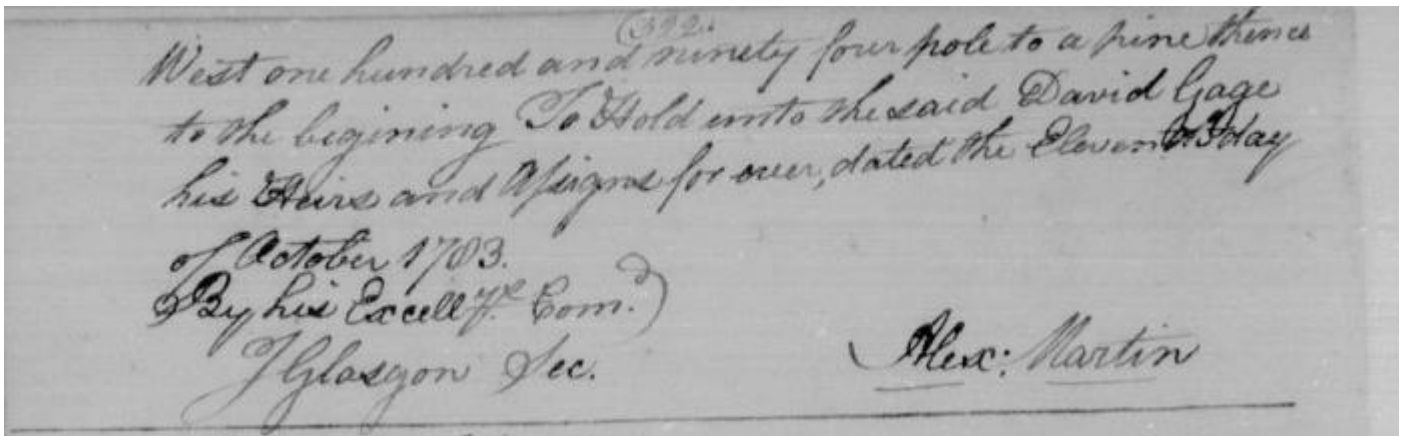 (322.
West one hundred and ninety four pole to a pine thence
to the begining To Hold unto the said David Gage
his Heirs and Assigns for over, dated the Eleventh day
of October 1783.
By his Excelly's. Com.d)
J Glasgon Sec.
Alex: Martin